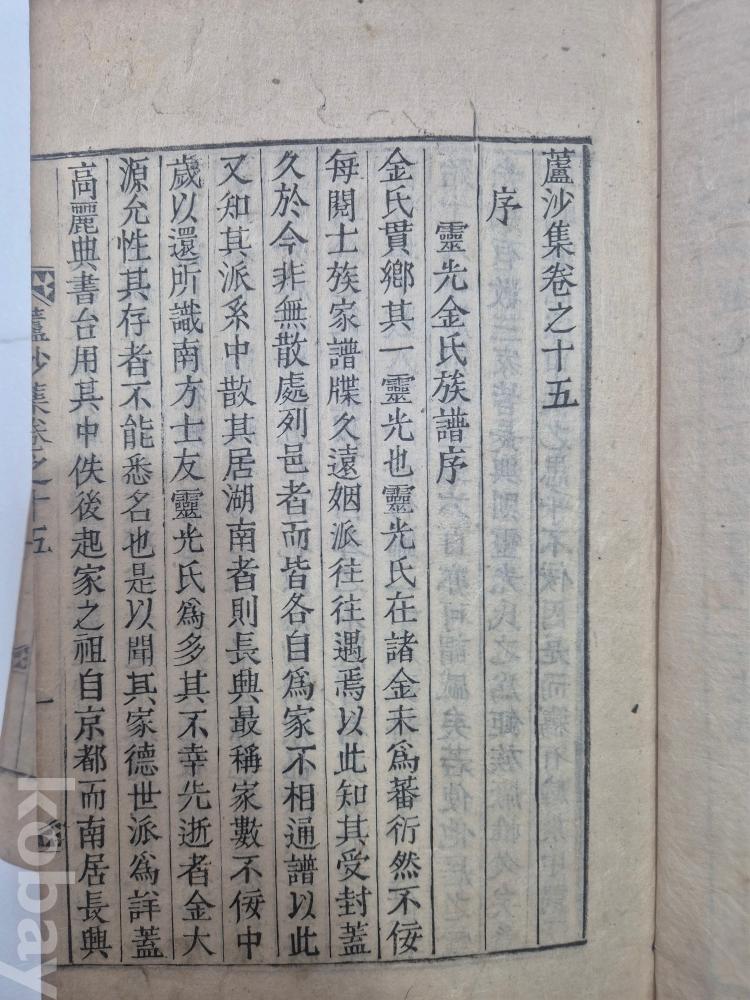 蘆沙集卷之十五
序
靈光金氏族譜序
金氏貫鄉其一靈光也靈光氏在諸金未爲蕃衍然不佞
每閱士族家譜牒久遠姻派往往遇焉以此知其受封蓋
久於今非無散處列邑者而皆各自爲家不相通譜以此
又知其派系中散其居湖南者則長興最稱家數不佞中
歲以還所識南方士友靈光氏爲多其不幸先逝者金大
源允性其存者不能悉名也是以聞其家德世派爲詳蓋
高麗典書台用其中佚後起家之祖自京都而南居長興
蘆沙集卷之十五
一
kobay